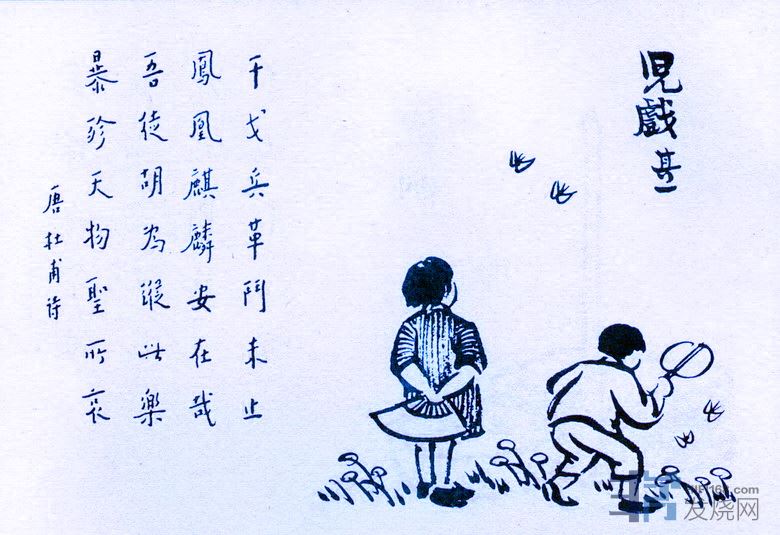 兒戲 其一
干戈兵革鬥未止
鳳凰麒麟安在哉
吾徒胡為縱此樂
暴殄天物聖所哀
唐杜甫詩
发烧网